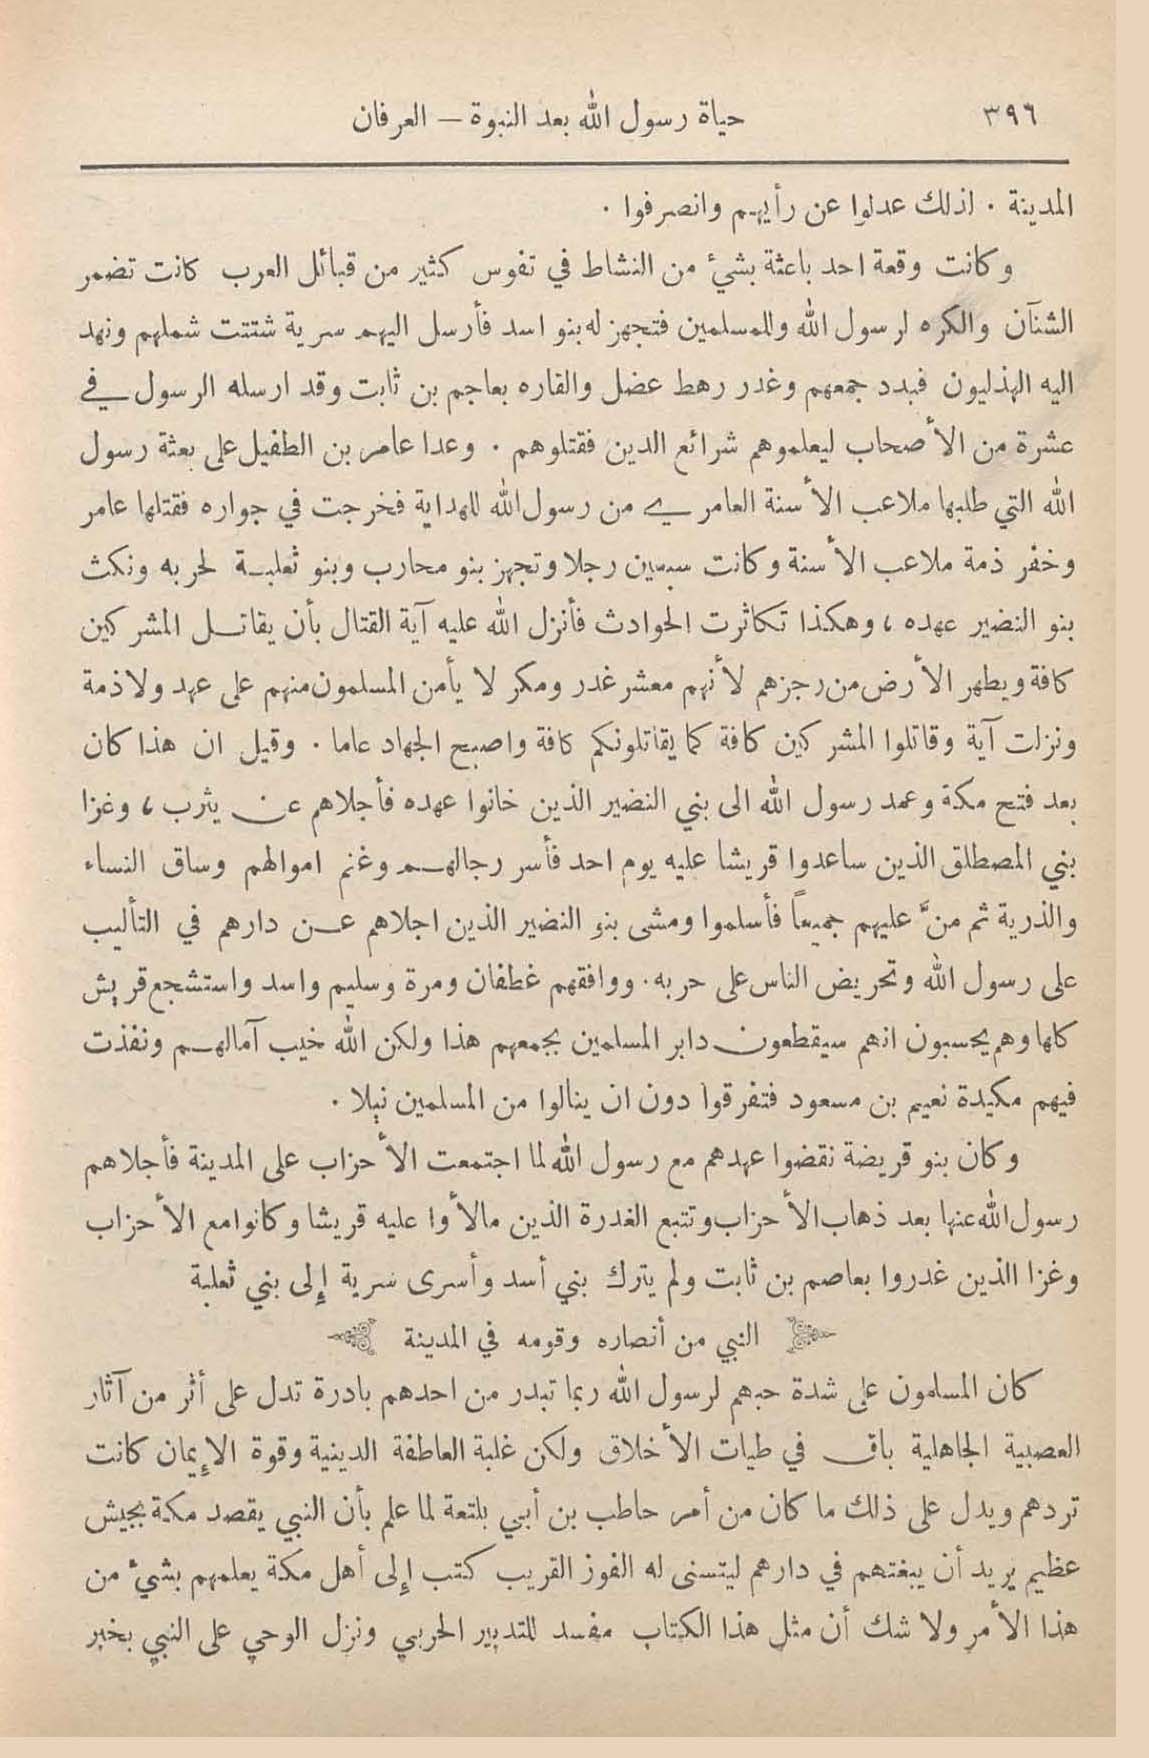 ٣٩٦ حياة رسول الله بعد النبوة — العرفان
المدينة . لذلك عدلوا عن رأيهم وانصرفوا .
وكانت وقعة احد باعثة بشيء من النشاط في نفوس كثير من قبائل العرب كانت تضمر
الشنآن والكره لرسول الله وللمسلمين فتجهز له بنو اسد فأرسل اليهم سرية شتتت شملهم ونهد
اليه الهذليون فبدد جمعهم وغدر رهط عضل والقاره بعاجم بن ثابت وقد ارسله الرسول في
عشرة من الأصحاب ليعلموهم شرائع الدين فقتلوهم . وعدا عامر بن الطفيل على بعثة رسول
الله التي طلبها ملاعب الأسنة العامري من رسول الله للهداية فخرجت في جواره فقتلها عامر
وخفر ذمة ملاعب الأسنة وكانت سبعين رجلا وتجهز بنو محارب وبنو ثعلبة لحربه ونكث
بنو النضير عهده ، وهكذا تكاثرت الحوادث فأنزل الله عليه آية القتال بأن يقاتل المشركين
كافة ويطهر الأرض من رجزهم لأنهم معشر غدر ومكر لا يأمن المسلمون منهم على عهد ولا ذمة
ونزلت آية وقاتلوا المشركين كافة كما يقاتلونكم كافة واصبح الجهاد عاما . وقيل ان هذا كان
بعد فتح مكة وعمد رسول الله الى بني النضير الذين خانوا عهده فأجلاهم عن يثرب ، وغزا
بني المصطلق الذين ساعدوا قريشا عليه يوم احد فأسر رجالهم وغنم اموالهم وساق النساء
والذرية ثم منّ عليهم جميعاً فأسلموا ومشى بنو النضير الذين اجلاهم عن دارهم في التأليب
على رسول الله وتحريض الناس على حربه . ووافقهم غطفان ومرة وسليم واسد واستشجع قريش
كلها وهم يحسبون انهم سيقطعون دابر المسلمين بجمعهم هذا ولكن الله خيب آمالهم ونفذت
فيهم مكيدة نعيم بن مسعود فتفرقوا دون ان ينالوا من المسلمين نيلا .
وكان بنو قريضة نقضوا عهدهم مع رسول الله لما اجتمعت الأحزاب على المدينة فأجلاهم
رسول الله عنها بعد ذهاب الأحزاب وتتبع الغدرة الذين مالأوا عليه قريشا وكانوا مع الأحزاب
وغزا الذين غدروا بعاصم بن ثابت ولم يترك بني أسد وأسرى سرية إلى بني ثعلبة
النبي من أنصاره وقومه في المدينة
كان المسلمون على شدة حبهم لرسول الله ربما تبدر من احدهم بادرة تدل على أثر من آثار
العصبية الجاهلية باق في طيات الأخلاق ولكن غلبة العاطفة الدينية وقوة الإيمان كانت
تردهم ويدل على ذلك ما كان من أمر حاطب بن أبي بلتعة لما علم بأن النبي يقصد مكة بجيش
عظيم يريد أن يبغتهم في دارهم ليتسنى له الفوز القريب كتب إلى أهل مكة يعلمهم بشيء من
هذا الأمر ولا شك أن مثل هذا الكتاب مفسد للتدبير الحربي ونزل الوحي على النبي بخبر